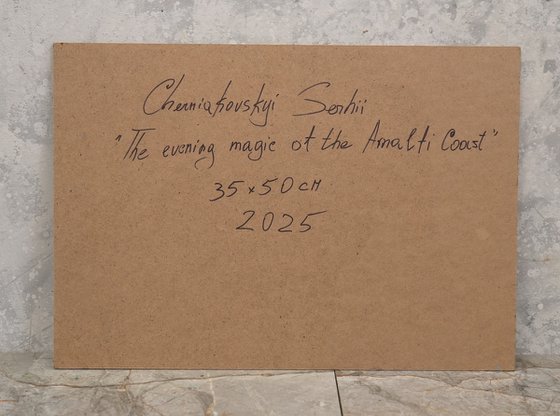 Cherniakovskyi Serhii
"The evening magic of the Amalfi Coast"
35x50см
2025